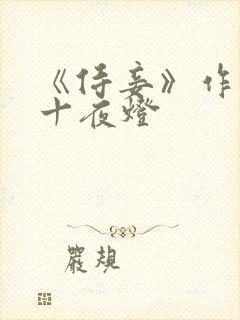 《侍妾》作
十夜燈
嚴規